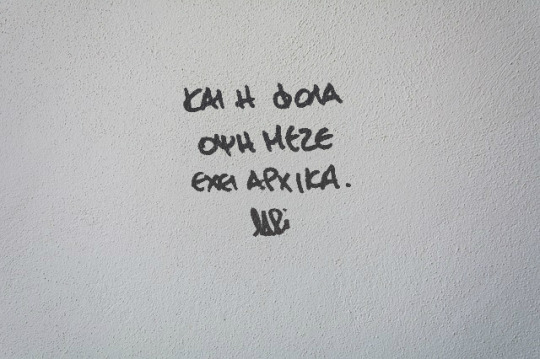 ΚΑΙ Η ΦΟΛΑ
ΟΨΗ ΜΕΖΕ
ΕΧΕΙ ΑΡΧΙΚΑ.